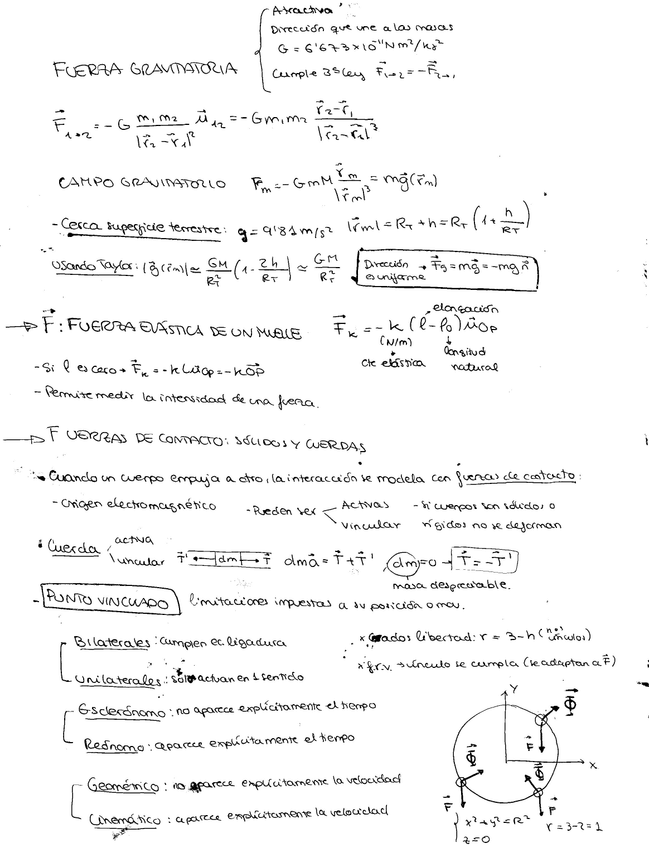 Atractiva
Dirección que une a las masas
G = 6'673×10⁻¹¹ N m²/kg²
FUERZA GRAVITATORIA
Cumple 3ª ley F⃗₁→₂ = -F⃗₂→₁
F⃗₁→₂ = -G m₁m₂/|r⃗₂-r⃗₁|² u⃗₁₂ = -Gm₁m₂ (r⃗₂-r⃗₁)/|r⃗₂-r⃗₁|³
CAMPO GRAVITATORIO F⃗m = -GmM r⃗m/|r⃗m|³ = mg⃗(r⃗m)
- Cerca superficie terrestre: g = 9'81 m/s² |r⃗m| = R_T + h = R_T (1 + h/R_T)
Usando Taylor: |g⃗(r⃗m)| ≃ GM/R_T² (1 - 2h/R_T) ≃ GM/R_T²
Dirección → F⃗g = mg⃗ = -mg n⃗
es uniforme
→ F⃗: FUERZA ELÁSTICA DE UN MUELLE F⃗k = -k (l-l₀) u⃗OP
elongación
(N/m)
cte elástica
longitud
natural
- Si l es cero → F⃗k = -k l u⃗OP = -k OP⃗
- Permite medir la intensidad de una fuerza.
→ FUERZAS DE CONTACTO: SÓLIDOS Y CUERDAS
• Cuando un cuerpo empuja a otro, la interacción se modela con fuerzas de contacto:
- Origen electromagnético - Pueden ser Activas - si cuerpos son sólidos o
vincular rígidos no se deforman
• Cuerda activa
vincular T⃗' dm T⃗ dm a⃗ = T⃗ + T⃗' dm = 0 → T⃗ = -T⃗'
masa despreciable.
- PUNTO VINCULADO limitaciones impuestas a su posición o mov.
Bilaterales: cumplen ec. ligadura
x Grados libertad: r = 3 - h (nº vínculos)
Unilaterales: solo actúan en 1 sentido
x f.r.v. → vínculo se cumpla (se adaptan a F⃗)
Esclerónomo: no aparece explícitamente el tiempo
Reónomo: aparece explícitamente el tiempo
Geométrico: no aparece explícitamente la velocidad
Cinemático: aparece explícitamente la velocidad
Y
X
F⃗
F⃗
F⃗
x² + y² = R²
z = 0
r = 3-2 = 1